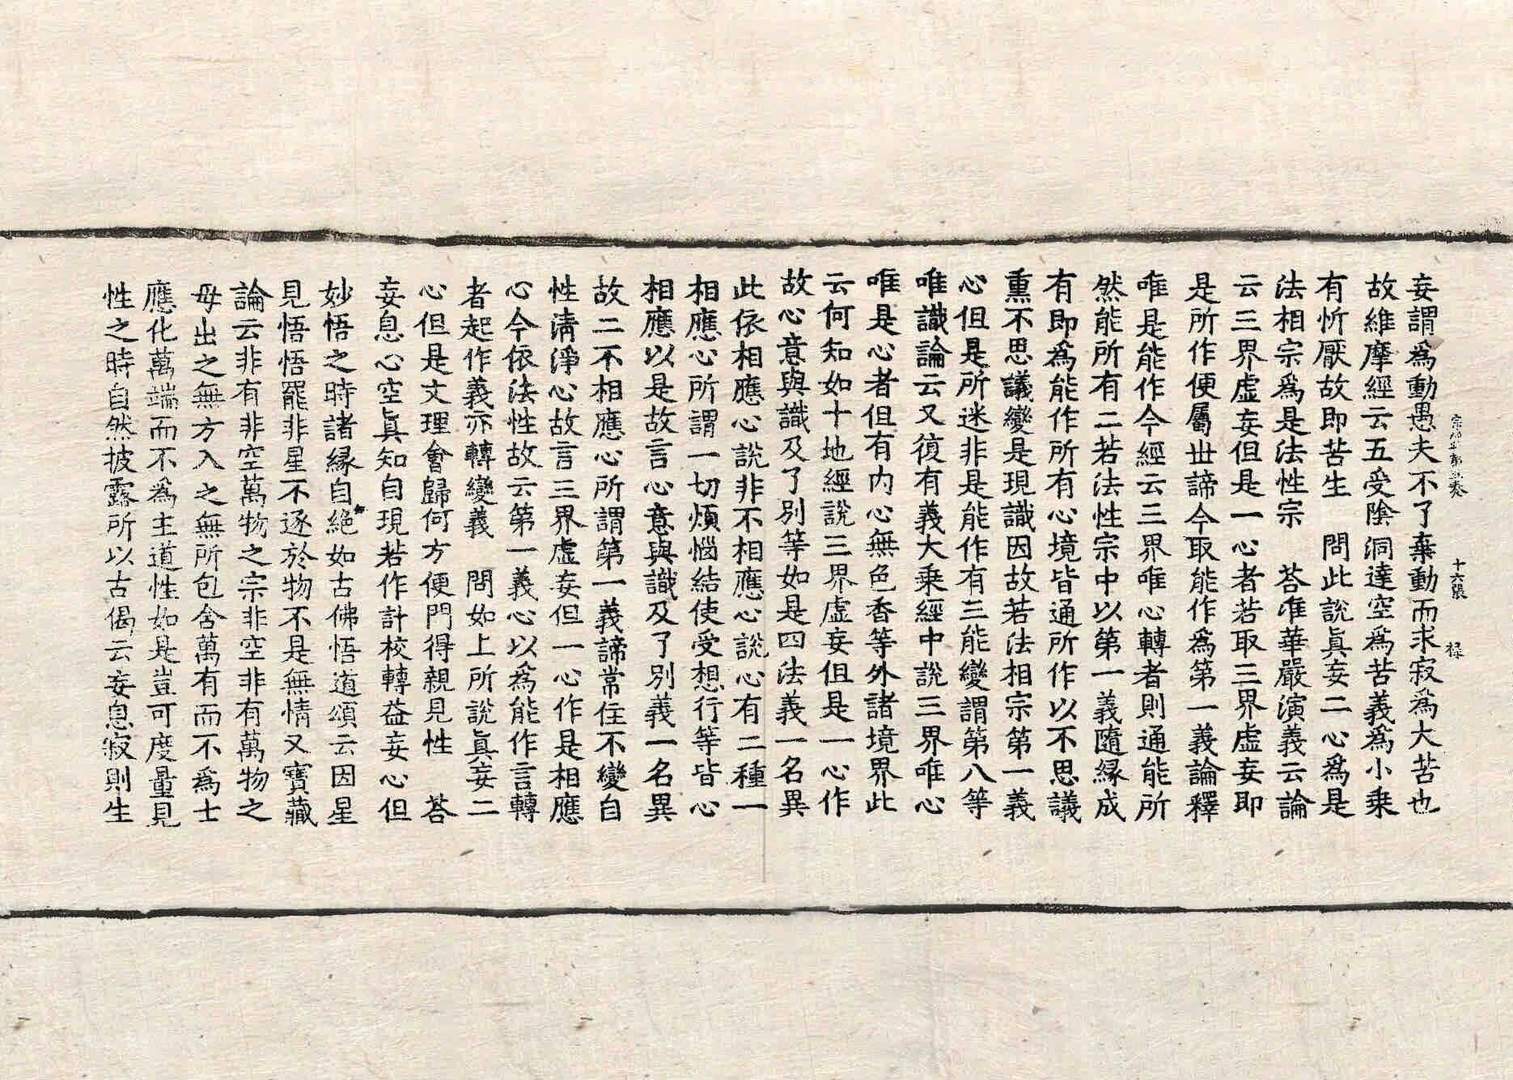 妄謂為動愚夫不了棄動而求寂為大苦也
故維摩經云五受陰洞達空為苦義為小乘
有忻厭故即苦生　問此說真妄二心為是
法相宗為是法性宗　答准華嚴演義云論
云三界虛妄但是一心者若取三界虛妄即
是所作便屬世諦今取能作為第一義論釋
唯是能作今經云三界唯心轉者則通能所
然能所有二若法性宗中以第一義隨緣成
有即為能作所有心境皆通所作以不思議
熏不思議變是現識因故若法相宗第一義
心但是所迷非是能作有三能變謂第八等
唯識論云又復有義大乘經中說三界唯心
唯是心者但有內心無色香等外諸境界此
云何知如十地經說三界虛妄但是一心作
故心意與識及了別等如是四法義一名異
此依相應心說非不相應心說心有二種一
相應心所謂一切煩惱結使受想行等皆心
相應以是故言心意與識及了別義一名異
故二不相應心所謂第一義諦常住不變自
性清淨心故言三界虛妄但一心作是相應
心今依法性故云第一義心以為能作言轉
者起作義亦轉變義　問如上所說真妄二
心但是文理會歸何方便門得親見性　答
妄息心空真知自現若作計校轉益妄心但
妙悟之時諸緣自絕如古佛悟道頌云因星
見悟悟罷非星不逐於物不是無情又寶藏
論云非有非空萬物之宗非空非有萬物之
母出之無方入之無所包含萬有而不為士
應化萬端而不為主道性如是豈可度量見
性之時自然披露所以古偈云妄息寂則生
十六張